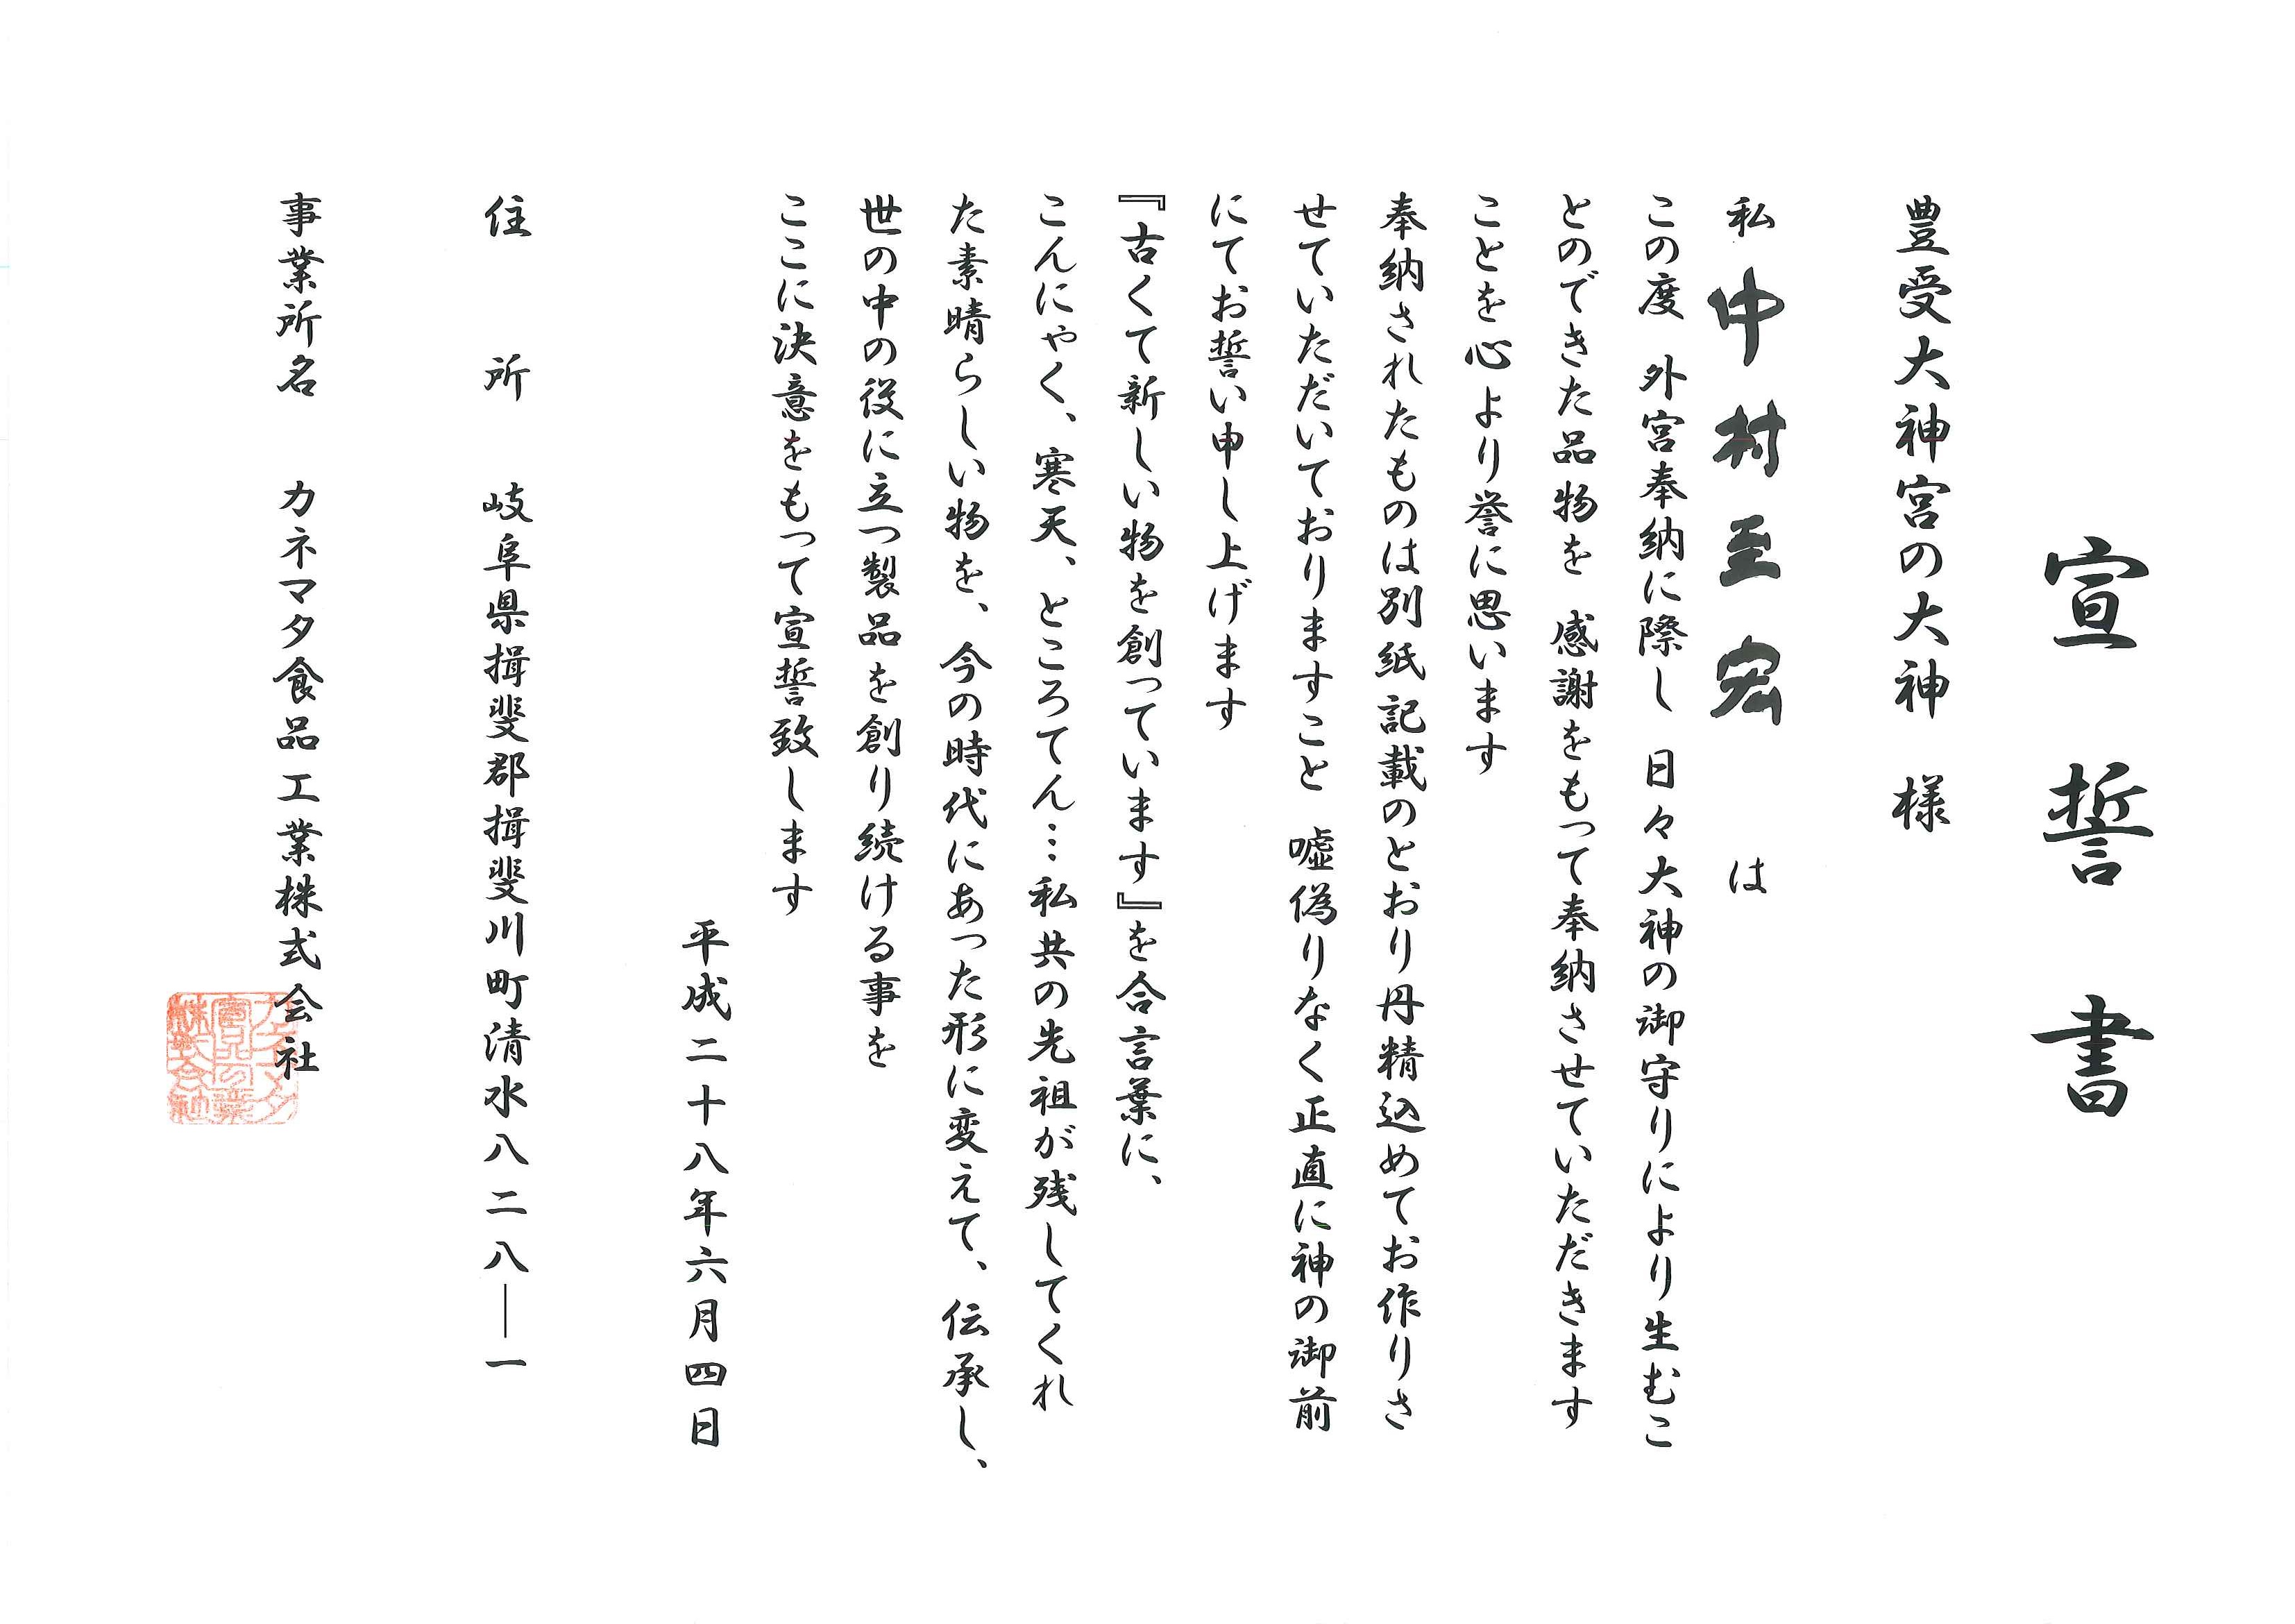 宣誓書
豊受大神宮の大神 様
私 中村至宏 は
この度 外宮奉納に際し 日々大神の御守りにより生むこ
とのできた品物を 感謝をもって奉納させていただきます
ことを心より誉に思います
奉納されたものは別紙記載のとおり丹精込めてお作りさ
せていただいておりますこと 嘘偽りなく正直に神の御前
にてお誓い申し上げます
『古くて新しい物を創っています』を合言葉に、
こんにゃく、寒天、ところてん…私共の先祖が残してくれ
た素晴らしい物を、今の時代にあった形に変えて、伝承し、
世の中の役に立つ製品を創り続ける事を
ここに決意をもって宣誓致します
平成二十八年六月四日
住所 岐阜県揖斐郡揖斐川町清水八二八―一
事業所名 カネマタ食品工業株式会社